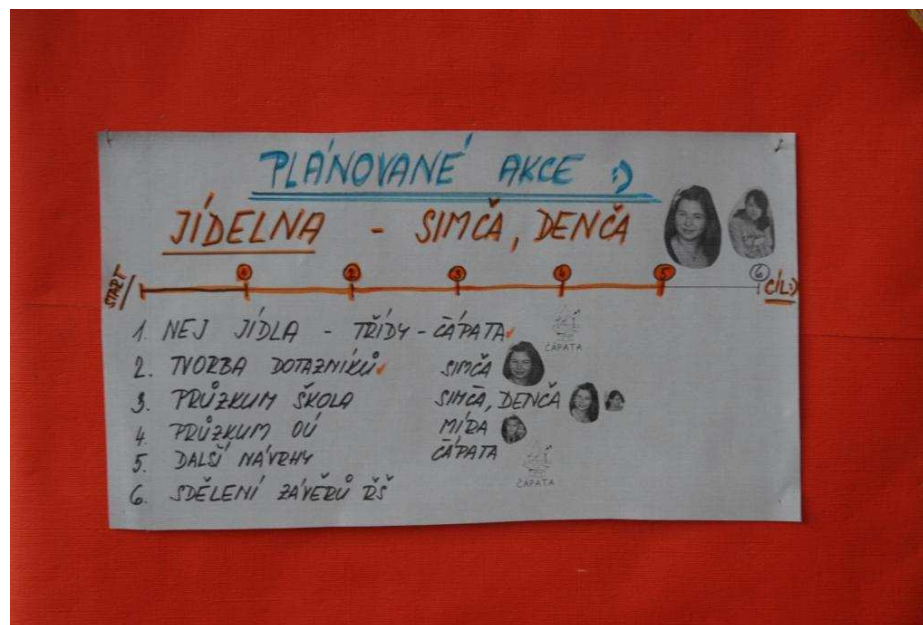 PLÁNOVANÉ AKCE :)
JÍDELNA - SIMČA, DENČA
START 1 2 3 4 5 6 CÍL:)
1. NEJ JÍDLA - TŘÍDY - ČÁPATA
ČÁPATA
2. TVORBA DOTAZNÍKŮ SIMČA
3. PRŮZKUM ŠKOLA SIMČA, DENČA
4. PRŮZKUM OÚ MÍRA
5. DALŠÍ NÁVRHY ČÁPATA
6. SDĚLENÍ ZÁVĚRŮ ŘŠ
ČÁPATA